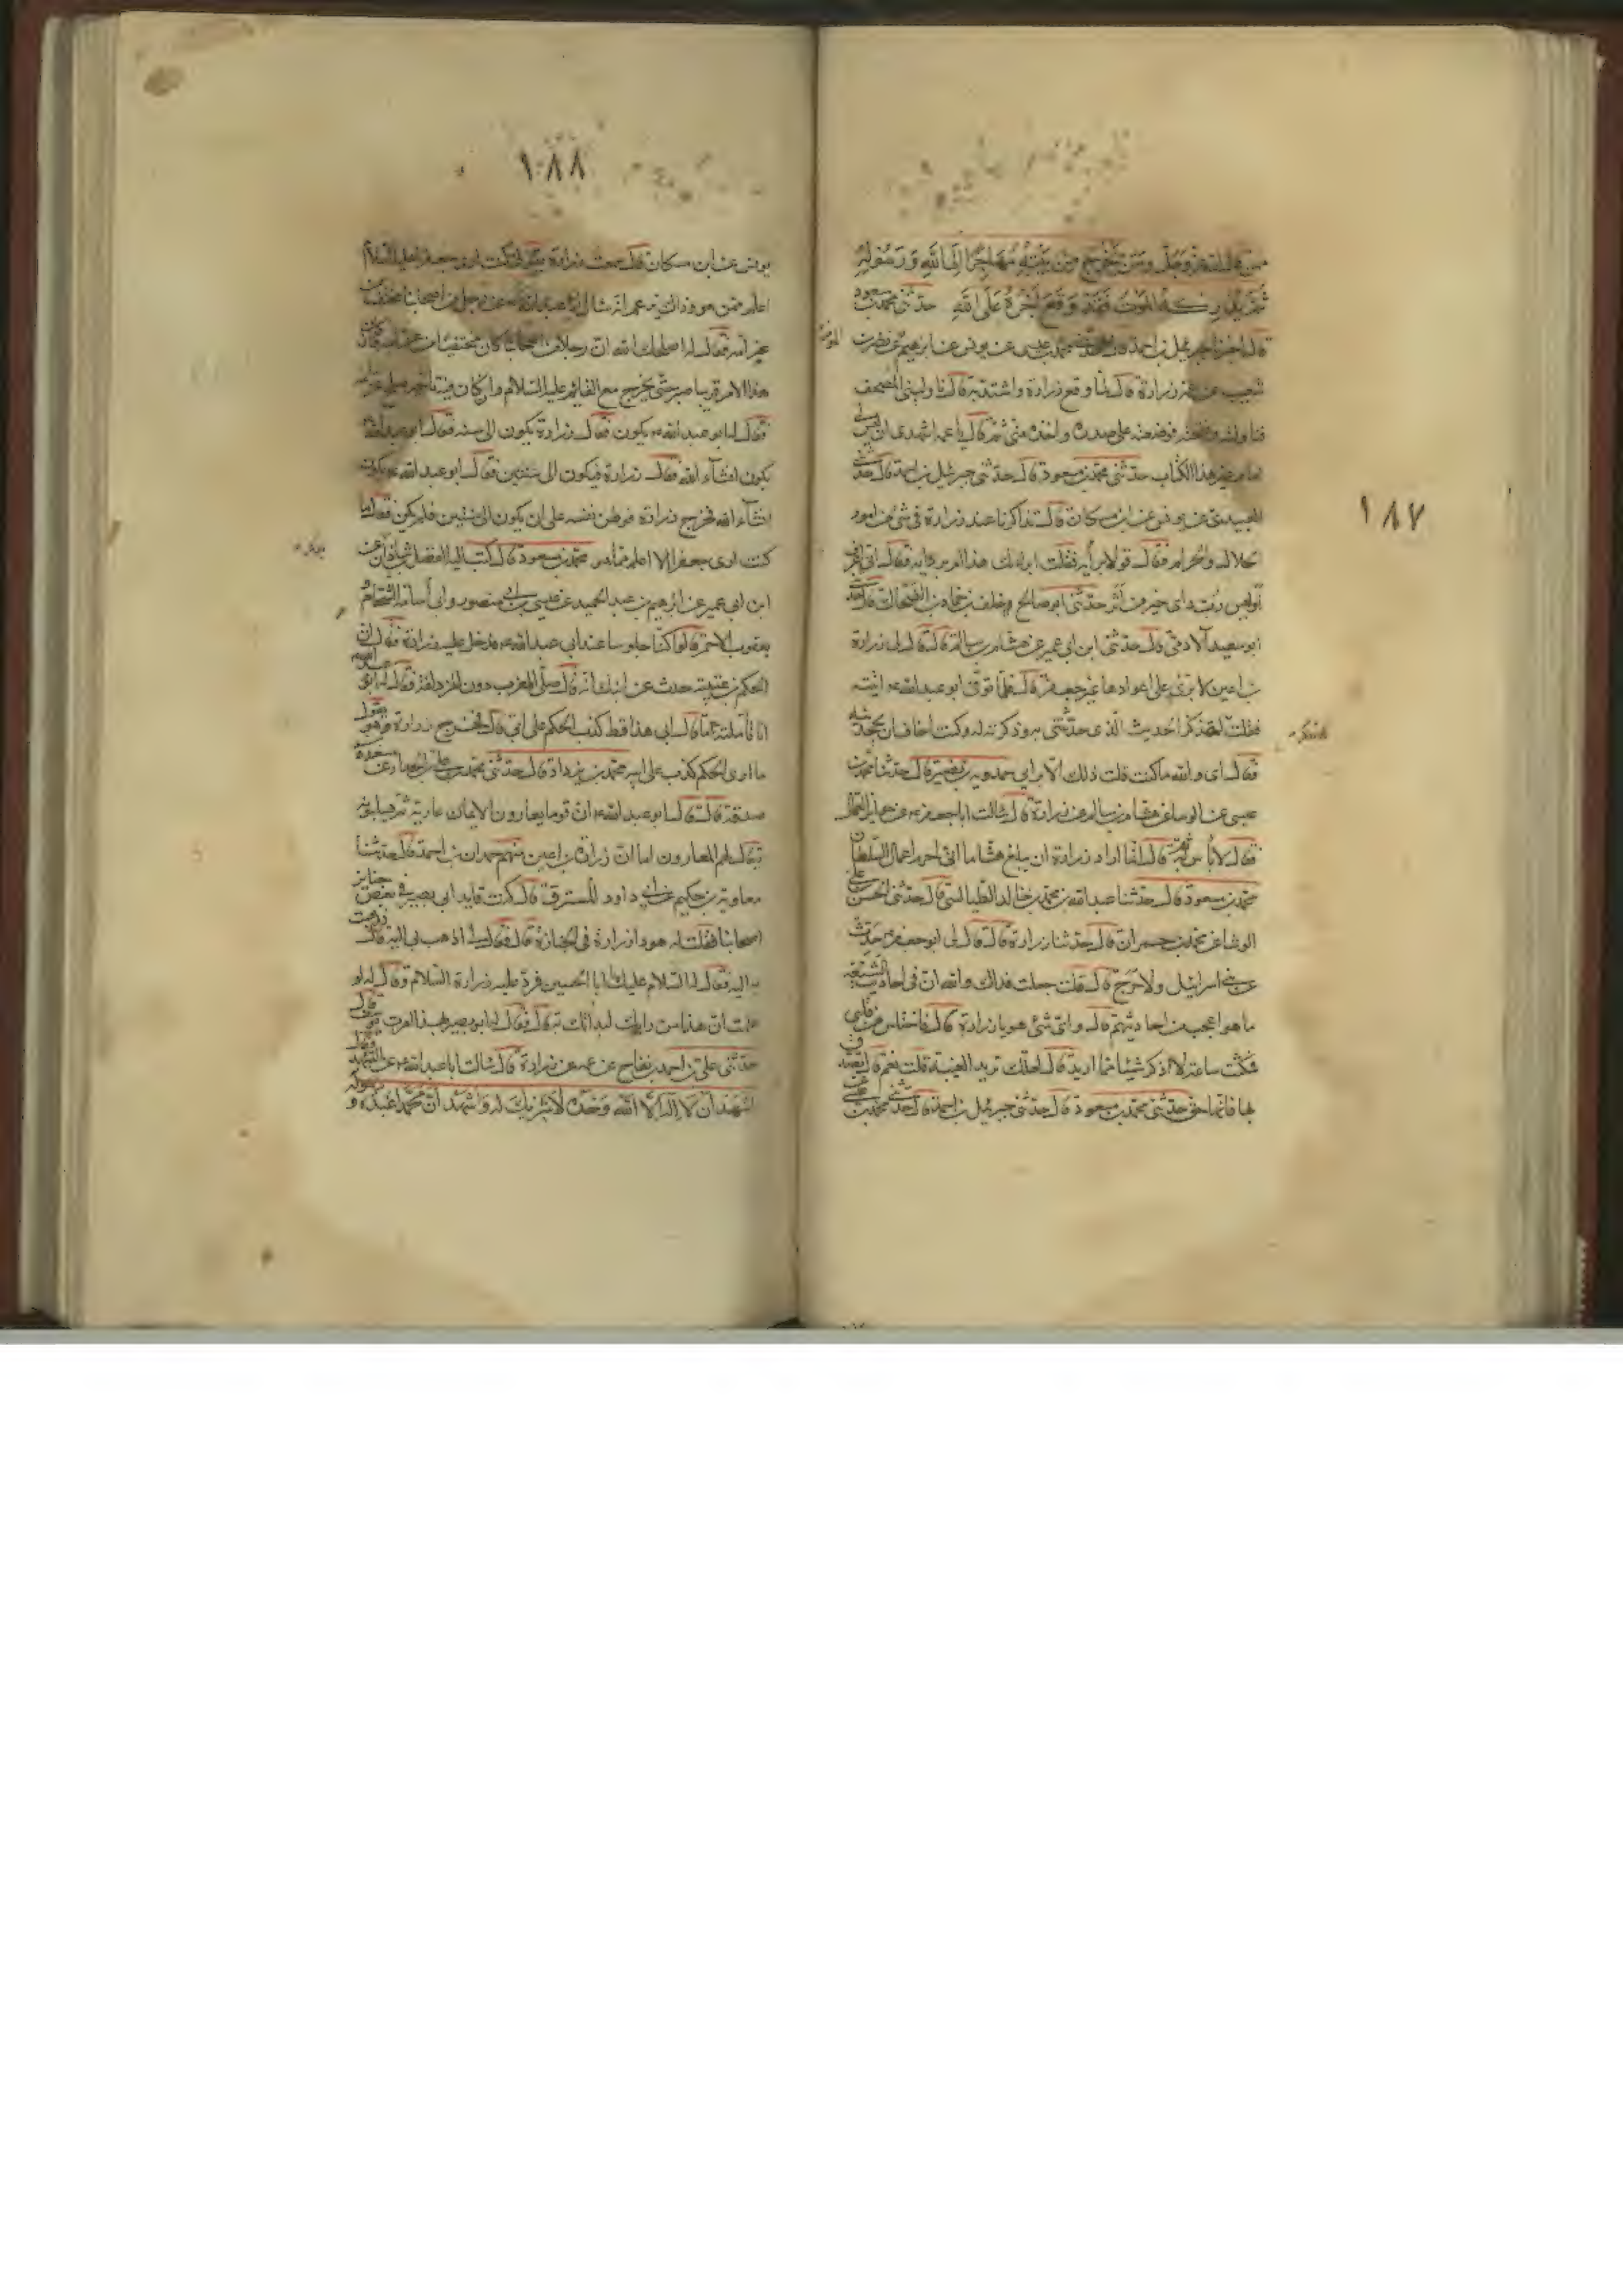 ١٨٧
ممن قال الله عز وجل ومن يخرج من بيته مهاجرا الى الله ورسوله
ثم يدركه الموت فقد وقع اجره على الله حدثنى محمد بن مسعود
قال اخبرنا جبرئيل بن احمد قال حدثنى محمد بن عيسى عن يونس عن ابرهيم عن نضر بن
شعيب عن عمة زرارة قالت لما وقع زرارة واشتد به قال ناولينى المصحف
فناولته وفتحته فوضعته على صدره واخذه منى ثم قال يا عمة اشهدى ان ليس لى
امام غير هذا الكتاب حدثنى محمد بن مسعود قال حدثنى جبرئيل بن احمد قال حدثنى
العبيدى عن يونس عن ابن مسكان قال تذاكرنا عند زرارة فى شئ من امور
الحلال والحرام فقال قولا برأيه فقلت ابرأيك هذا ام برواية فقال انى اعرف
اوليس رب راى خير من اثر حدثنى ابو صالح خلف بن حماد بن الضحاك قال حدثنى
ابو سعيد الآدمى قال حدثنى ابن ابى عمير عن هشام بن سالم قال قال لى زرارة
بن اعين لا ترى على اعوادها غير جعفر قال فلما توفى ابو عبد الله ع اتيته
فقلت له تذكر الحديث الذى حدثتنى به وذكرته له وكنت اخاف ان يجحدنيه
فقال اى والله ما كنت قلت ذلك الا برأيى حمدويه بن نصير قال حدثنا محمد بن
عيسى عن الوشا عن هشام بن سالم عن زرارة قال سالت ابا جعفر ع عن جوائز العمال
فقال لا باس به ثم قال انما اراد زرارة ان يبلغ هشاما انى احرم اعمال السلطان
محمد بن مسعود قال حدثنا عبد الله بن محمد بن خالد الطيالسى قال حدثنى الحسن بن على
الوشا عن محمد بن حمران قال حدثنا زرارة قال قال لى ابو جعفر ع حدث
عن بنى اسرائيل ولا حرج قال قلت جعلت فداك والله ان فى احاديث الشيعة
ما هو اعجب من احاديثهم قال واى شئ هو يا زرارة قال فاختلس من قلبى
فمكث ساعة لا اذكر شيئا مما اريد قال لعلك تريد الغيبة قلت نعم قال فصدق
بها فانها حق حدثنى محمد بن مسعود قال حدثنى جبرئيل بن احمد قال حدثنى محمد بن عيسى عن
١٨٨
يونس عن ابن مسكان قال سمعت زرارة يقول كنت ارى جعفرا عليه السلام
اعلم ممن هو وذاك يزعم انه سال ابا عبد الله ع عن رجل من اصحابنا مختف من
غرامه فقال له اصلحك الله ان رجلا من اصحابنا كان مختفيا من غرامه فان كان
هذا الامر قريبا صبر حتى يخرج مع القائم عليه السلام وان كان فيه تاخير صالح غرامه
فقال له ابو عبد الله ع يكون فقال زرارة يكون الى سنه فقال ابو عبد الله ع
يكون انشاء الله فقال زرارة فيكون الى سنتين فقال ابو عبد الله ع يكون
انشاء الله فخرج زرارة فوطن نفسه على ان يكون الى سنتين فلم يكن فقال ما
كنت ارى جعفرا الا اعلم مما هو محمد بن مسعود قال كتب اليه الفضل بن شاذان عن
ابن ابى عمير عن ابرهيم بن عبد الحميد عن عيسى بن ابى منصور وابى اسامة الشحام
يعقوب الاحمر قالوا كنا جلوسا عند ابى عبد الله ع فدخل عليه زرارة فقال ان
الحكم بن عتيبة حدث عن ابيك انه قال صلى المغرب دون المزدلفة فقال له ابو عبد الله ع
انا تأملته ما قال ابى هذا قط كذب الحكم على ابى قال فخرج زرارة وهو يقول
ما ارى الحكم كذب على ابيه محمد بن يزداد قال حدثنى محمد بن على الحداد عن مسعدة
صدقة قال قال ابو عبد الله ع ان قوما يعارون الايمان عارية ثم يسلبونه
يقال لهم المعارون اما ان زرارة بن اعين منهم حمدان بن احمد قال حدثنا
معاوية بن حكيم عن ابى داود المسترق قال كنت قايد ابى بصير فى بعض جنايز
اصحابنا فقلت له هو ذا زرارة فى الجنازة قال فقال لى اذهب بى اليه قال فذهبت
به اليه فقال له السلام عليك ابا الحسن فرد عليه زرارة السلام وقال له لو
علمت ان هذا من رايك لبدأتك به قال فقال له ابو بصير بهذا امرت يوسف قال
حدثنى على بن احمد بن بقاح عن عمه عن زرارة قال سالت ابا عبد الله ع عن التشهد فقال
اشهد ان لا اله الا الله وحده لا شريك له واشهد ان محمدا عبده و رسوله